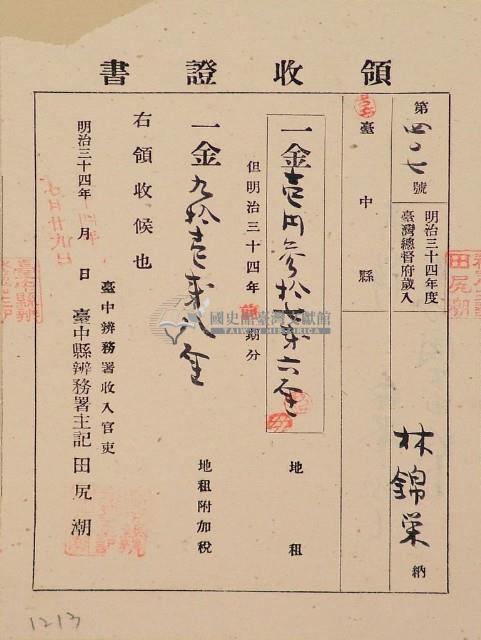 領收證書
第四〇七號
明治三十四年度
臺灣總督府歲入
林錦榮 納
臺中縣
一金壹円參拾七錢六厘 地租
但明治三十四年 期分
一金九拾壹錢八厘 地租附加稅
右領收候也
臺中辨務署收入官吏
明治三十四年 月 日 臺中縣辨務署主記 田尻潮
田尻潮
國史館臺灣文獻館
TAIWAN HISTORICA
1213